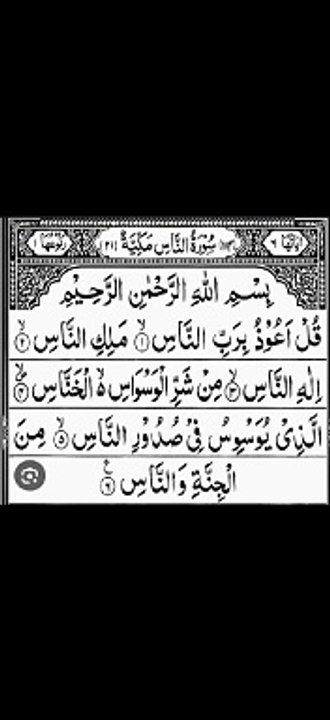 اٰیَاتُهَا ٦ ﴿١١٤﴾ سُوْرَةُ النَّاسِ مَكِّيَّةٌ ﴿٢١﴾ رُكُوْعُهَا ١
بِسْمِ اللّٰهِ الرَّحْمٰنِ الرَّحِيْمِ
قُلْ اَعُوْذُ بِرَبِّ النَّاسِ ۙ﴿١﴾ مَلِكِ النَّاسِ ۙ﴿٢﴾
اِلٰهِ النَّاسِ ۙ﴿٣﴾ مِنْ شَرِّ الْوَسْوَاسِ ۙ الْخَنَّاسِ ۙ﴿٤﴾
الَّذِىْ يُوَسْوِسُ فِىْ صُدُوْرِ النَّاسِ ۙ﴿٥﴾ مِنَ
الْجِنَّةِ وَالنَّاسِ ﴿٦﴾